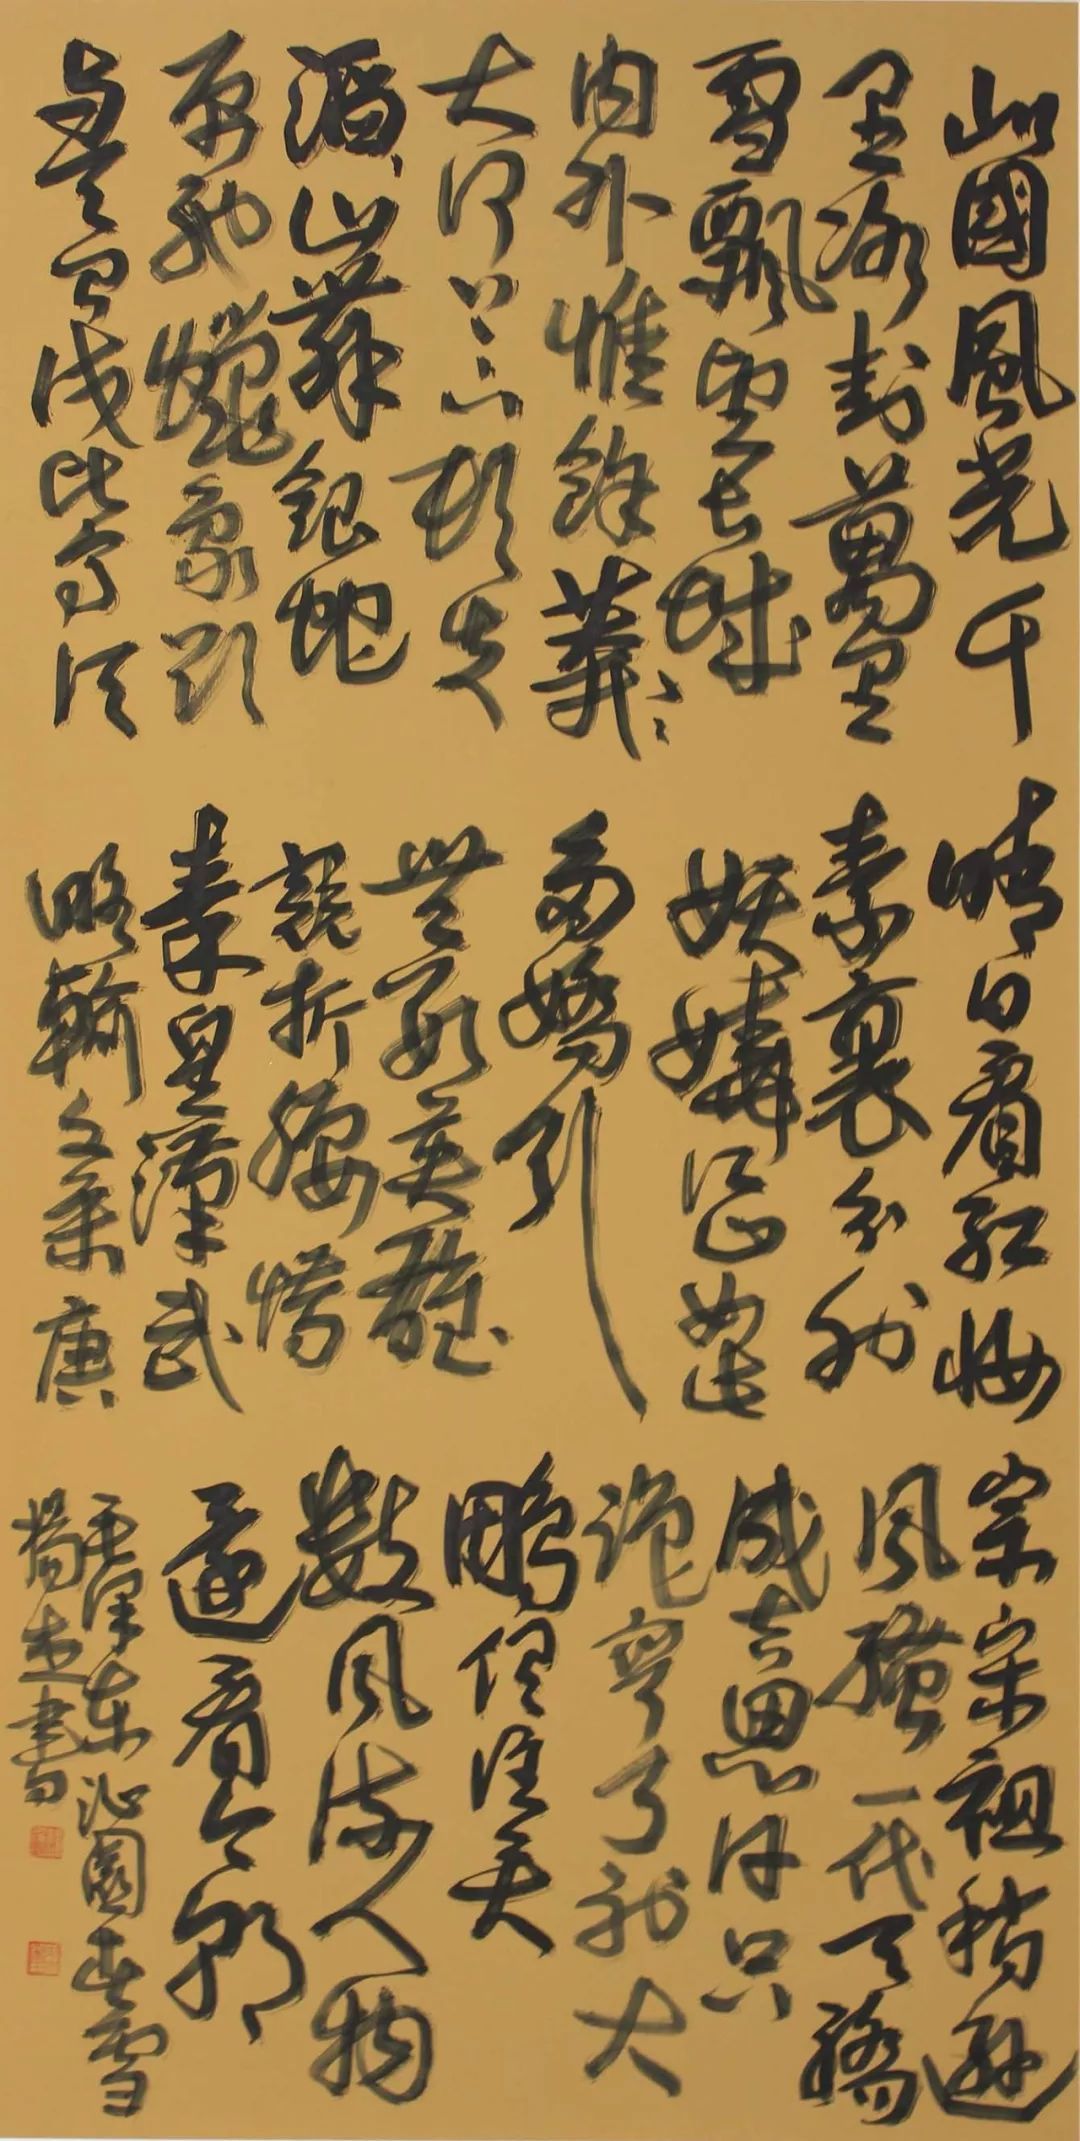 北國風光千
里冰封萬里
雪飄望長城
内外惟餘莽〻
大河上下頓失
滔〻山舞銀蛇
原馳蠟象欲
與天公試比高須
晴日看紅妝
素裹分外
妖嬈江山如此
多嬌引
無數英雄
競折腰惜
秦皇漢武
略輸文采唐
宗宋祖稍遜
風騷一代天驕
成吉思汗只
識彎弓射大
鵰俱往矣
數風流人物
還看今朝
毛澤東沁園春雪
楊書